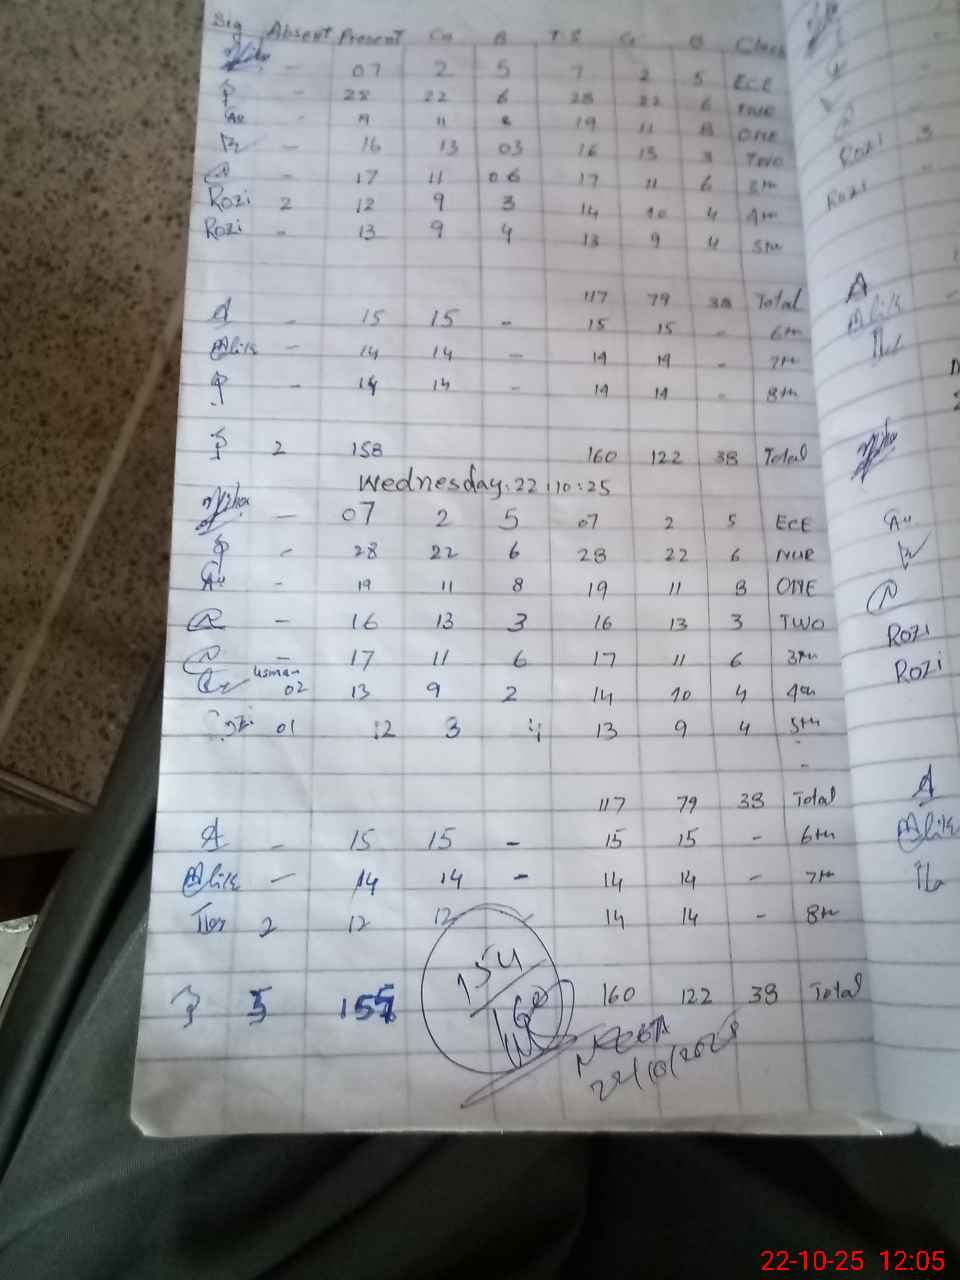 Sig Absent Present G B T.S G B Class
- 07 2 5 7 2 5 ECE
- 28 22 6 28 22 6 NUR
- 19 11 8 19 11 8 ONE
- 16 13 03 16 13 3 TWO
- 17 11 06 17 11 6 3th
Rozi 2 12 9 3 14 10 4 4th
Rozi - 13 9 4 13 9 4 5th
117 79 38 Total
A - 15 15 - 15 15 - 6th
- 14 14 - 14 14 - 7th
- 14 14 - 14 14 - 8th
2 158 160 122 38 Total
Wednesday:22:10:25
- 07 2 5 07 2 5 ECE
- 28 22 6 28 22 6 NUR
- 19 11 8 19 11 8 ONE
- 16 13 3 16 13 3 TWO
- 17 11 6 17 11 6 3th
usman 02 13 9 2 14 10 4 4th
01 12 3 13 9 4 5th
117 79 38 Total
A - 15 15 - 15 15 - 6th
- 14 14 - 14 14 - 7th
2 12 12 14 14 - 8th
5 155 160 122 38 Total
154
160
22/10/2025
Rozi 3
Rozi
A
Rozi
Rozi
A
22-10-25 12:05